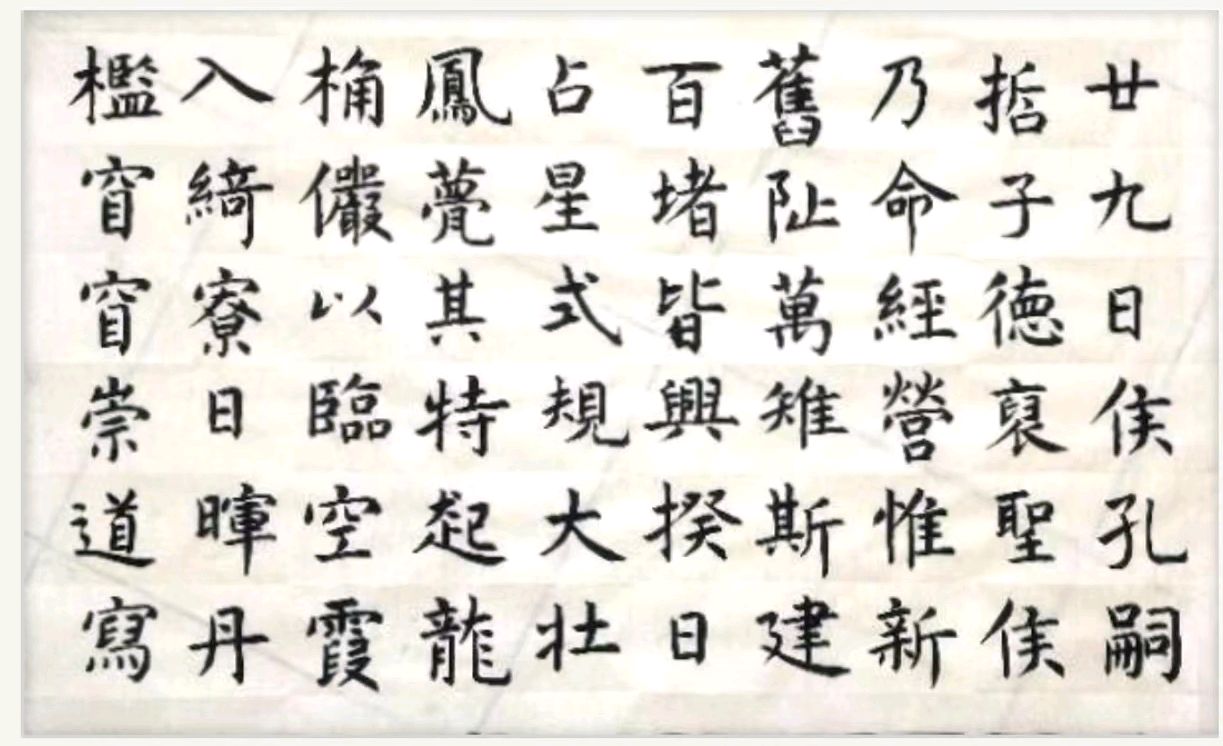 廿九日侯孔嗣
哲子德裒聖侯
乃命經營惟新
舊阯萬雉斯建
百堵皆興揆日
占星式規大壯
鳳甍其特起龍
桷儼以臨空霞
入綺寮日暉丹
檻窅窅崇道寫